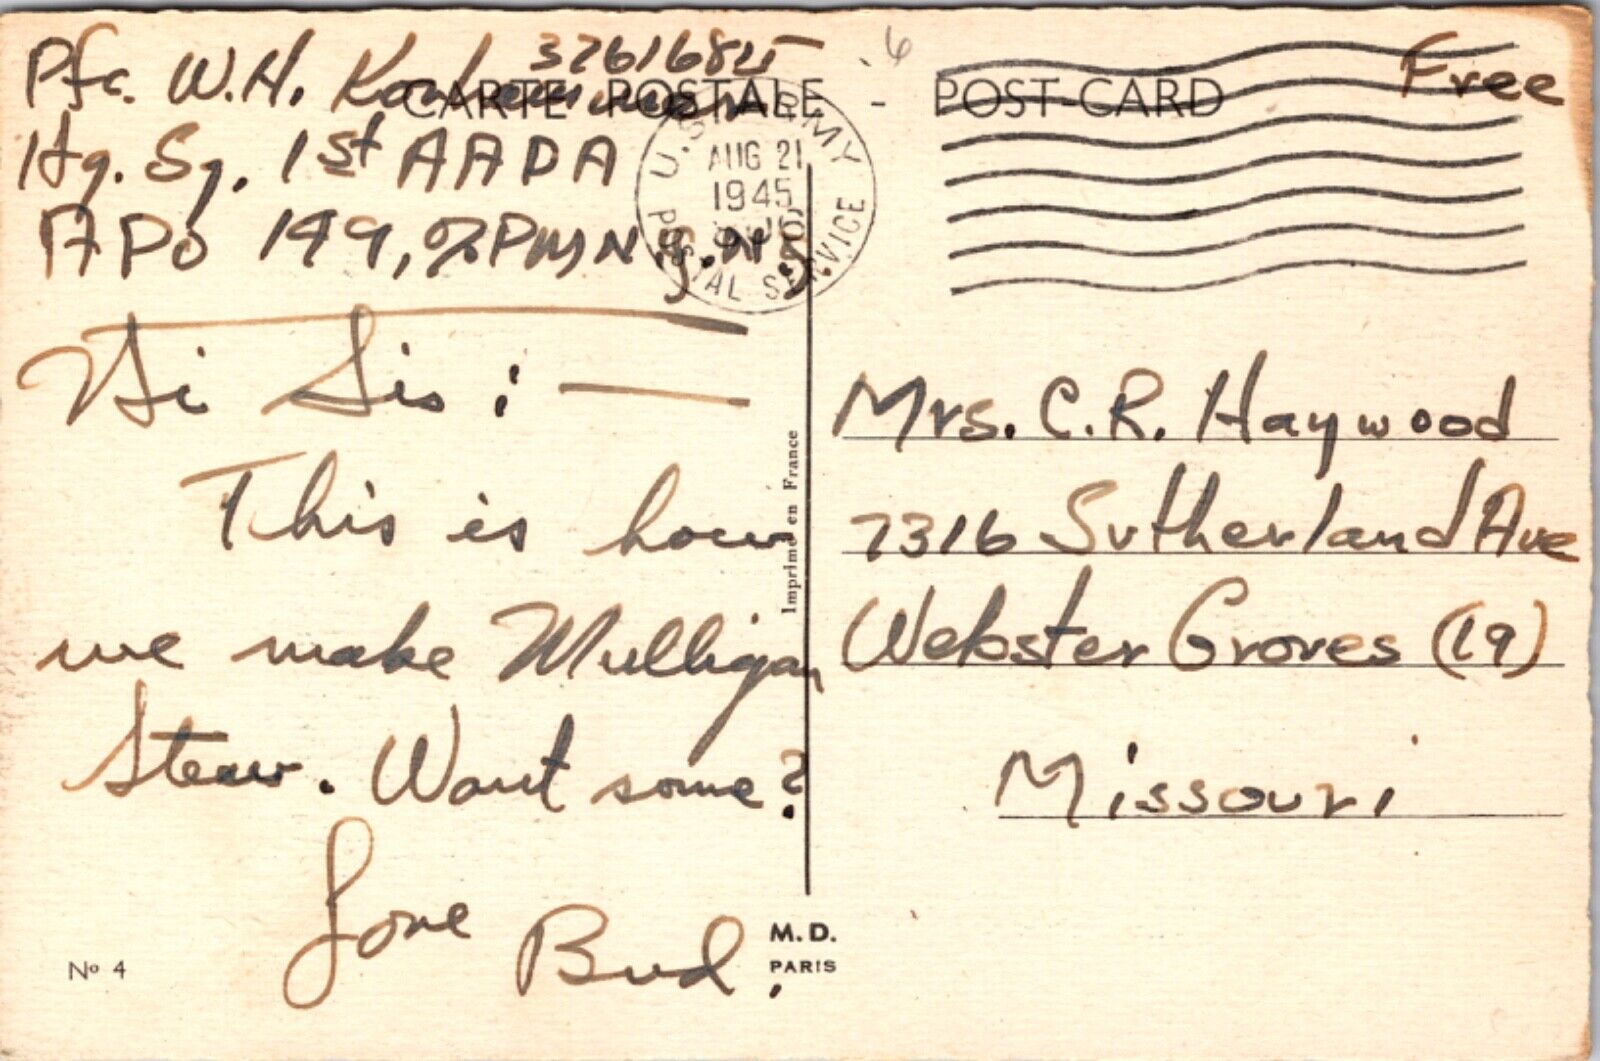 Pfc. W.H. 37616845
CARTE POSTALE - POST-CARD
Free
Hq. Sq. 1st AADA
APO 149, % PM N.Y. N.Y.
U.S. ARMY
AUG 21
1945
POSTAL SERVICE
Hi Sis: —
This is how
we make Mulligan
Stew. Want some?
Love
Bud.
Imprimé en France
Mrs. C.R. Haywood
7316 Sutherland Ave
Webster Groves (19)
Missouri
No 4
M.D.
PARIS
6